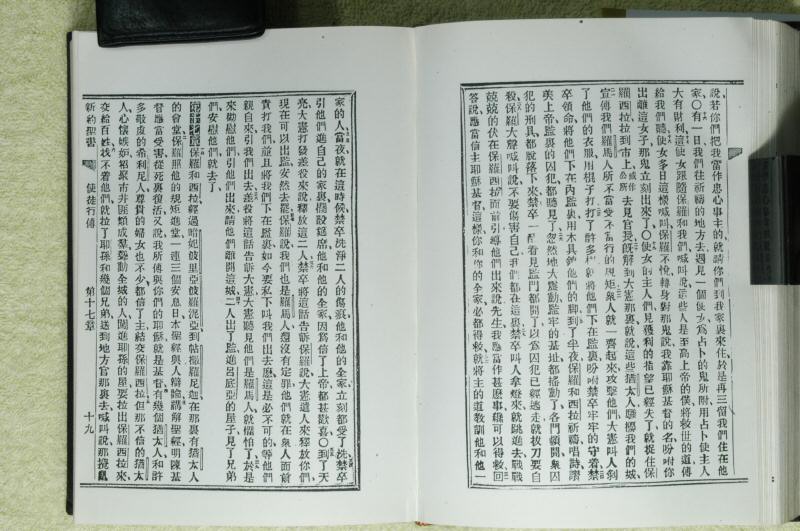 說、若你們把我當作忠心事主的、就請你們到我家裏來住、於是再三留我們住在他
家、○有一日、我們往祈禱的地方去、遇見一個使女、爲占卜的鬼所附、用占卜使主人
大有財利、這使女跟隨保羅和我們喊叫說、這些人是至高上帝的僕、將救世的道傳
給我們聽、使女多日這樣喊叫、保羅不悅、轉身對那鬼說、我靠耶穌基督的名、吩咐你
出離這女子、那鬼立刻出來了、○使女的主人們、見獲利的指望已經失了、就捉住保
羅西拉、拉到市上 或作公所 去見官長、旣解到大憲那裏、就說、這些猶太人、騷擾我們的城、
宣傳我們羅馬人所不當受不當行的規矩、衆人就一齊起來攻擊他們、大憲叫人剝
了他們的衣服、用棍子打、打了許多 就將他們下在監裏、吩咐禁卒牢牢的守着、禁
卒領命、將他們下在內監裏、用木具 他們的脚、到了半夜、保羅和西拉祈禱唱詩讚
美上帝、監裏的囚犯都聽見了、忽然地大震動、監牢的基址都搖動了、各門頓開、衆囚
犯的刑具、都脫落下來、禁卒一醒、看見監門都開了、以爲囚犯已經逃走、就拔刀要自
殺、保羅大聲喊叫說、不要傷害自己、我們都在這裏、禁卒叫人拿燈來、就跳進去、戰戰
兢兢的伏在保羅西拉面前、引導他們出來、說、先生、我應當作甚麽事、纔可以得救、回
答說、應當信主耶穌基督、這樣、你和你的全家、必都得救、就將主的道、教訓他和他一
家的人、當夜、就在這時候、禁卒洗淨二人的傷痕、他和他的全家、立刻都受了洗、禁卒
引他們進自己的家裏、擺設筵席、他和他的全家、因爲信了上帝、都甚歡喜、○到了天
亮、大憲打發差役來說、釋放這二人、禁卒將這話告訴保羅說、大憲遣人來釋放你們、
現在可以出監、安然去罷、保羅說、我們也是羅馬人、還沒有定罪、他們就在衆人面前
責打我們、並且將我們下在監裏、如今要私下叫我們出去麽、這是必不可的、等他們
親自來引我們出去、差役將這話告訴大憲、大憲聽見他們是羅馬人、就懼怕了、於是
來勸慰他們、引他們出來、請他們離開這城、二人出了監、進呂底亞的屋子、見了兄弟
們、安慰他們、就去了、
第十七章 保羅和西拉、經過暗妃坡里亞波羅泥亞、到帖撒羅尼迦、在那裏有猶太人
的會堂、保羅照他的規矩進堂、一連三個安息日、本聖經與人辯論、講解聖經、明陳基
督應當受害、從死裏復活、又說、我所傳與你們的耶穌、就是基督、有幾個猶太人和許
多敬虔的希利尼人、尊貴的婦女也不少、都信了主、結交保羅西拉、但那不信的猶太
人、心懷嫉妬、招聚市井匪類、成羣聳動全城的人、闖進耶孫的屋、要拉出保羅西拉來、
交給百姓、找不着他們、就拉了耶孫和幾個兄弟、送到地方官那裏去、喊叫說、那攪亂
新約聖書 使徒行傳 第十七章 十九